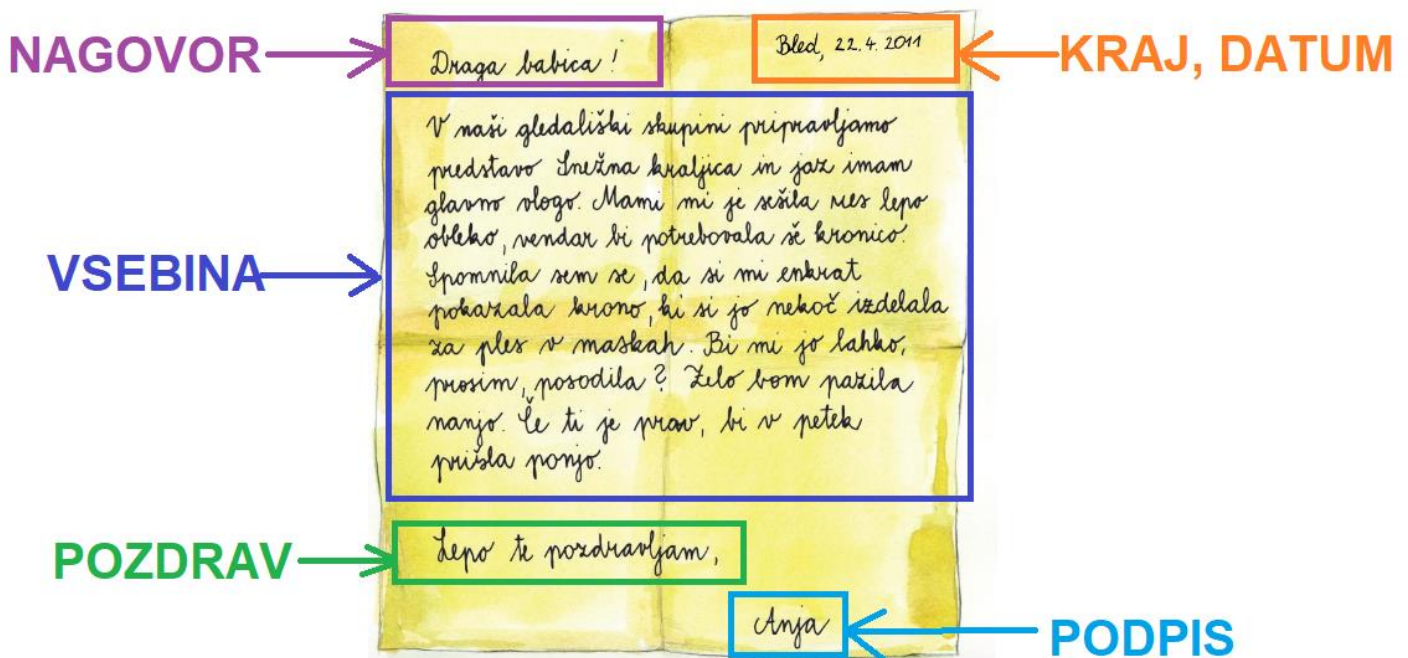 NAGOVOR
Draga babica!
Bled, 22. 4. 2011
KRAJ, DATUM
VSEBINA
V naši gledališki skupini pripravljamo
predstavo Snežna kraljica in jaz imam
glavno vlogo. Mami mi je sešila res lepo
obleko, vendar bi potrebovala še kronico.
Spomnila sem se, da si mi enkrat
pokazala krono, ki si jo nekoč izdelala
za ples v maskah. Bi mi jo lahko,
prosim, posodila? Zelo bom pazila
nanjo. Če ti je prav, bi v petek
prišla ponjo.
POZDRAV
Lepo te pozdravljam,
Anja
PODPIS